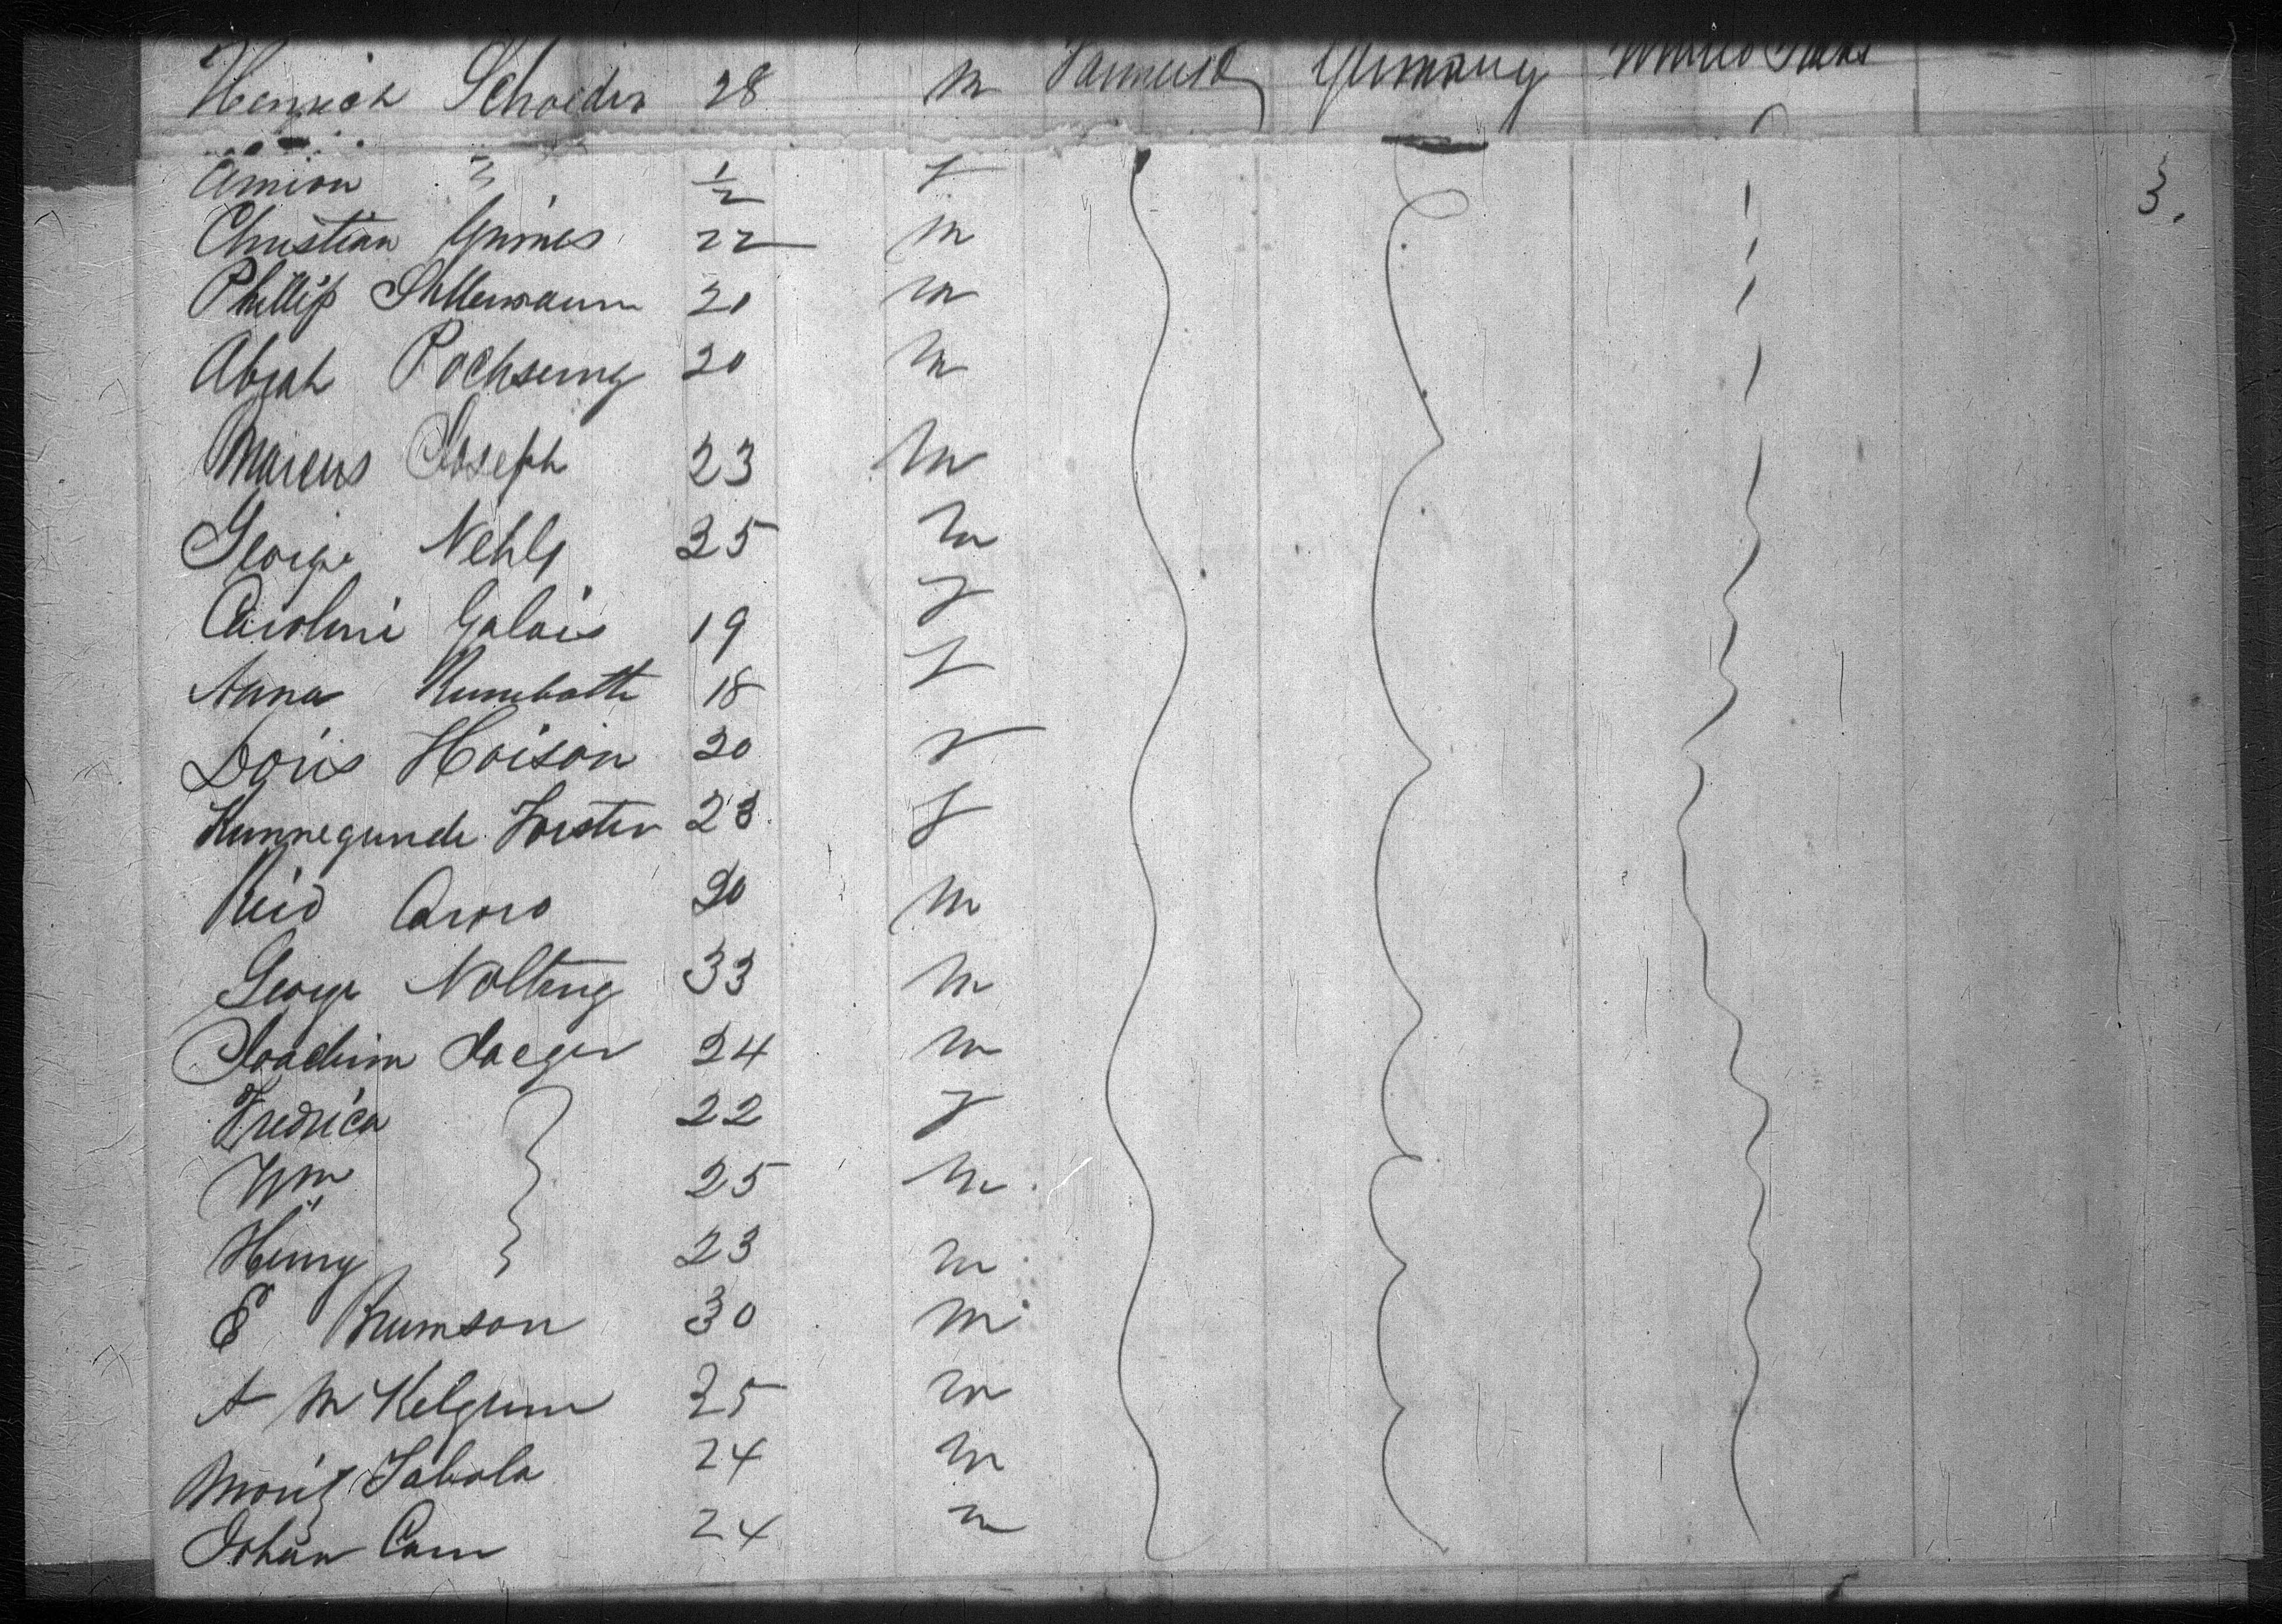 Henrich Schoeder 28 m Farmers Germany United States
Amion " 1/2 f 3.
Christian Grimes 22 m
Phillip Stillemaun 21 m
Abrah Pochserng 20 m
Marcus Joseph 23 m
George Nehls 35 m
Carolini Galois 19 f
Anna Rumbatte 18 f
Doris Hoison 20 f
Kunnegunde Forster 23 f
Reid 20 m
George Nolting 33 m
Joachim Jaeger 24 m
Fredrica 22 f
Wm 25 m
Henry 23 m
E Brumson 30 m
A M Kelgrum 35 m
Moritz Tabola 24 m
Johan Carn 24 m